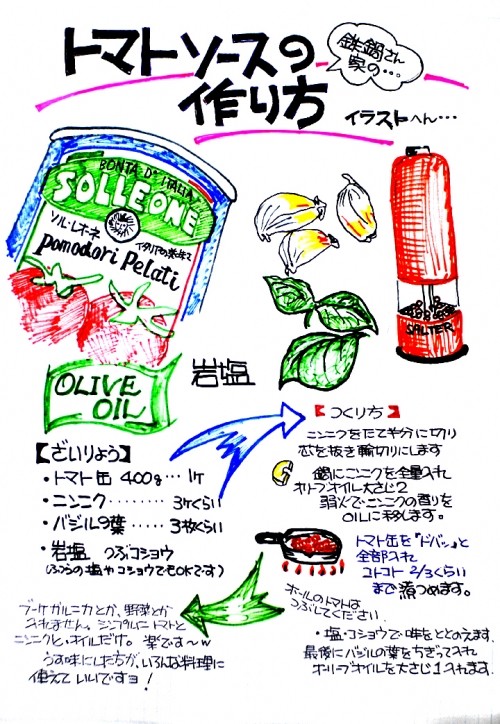 トマトソースの
作り方
鉄鍋さん
実の…
イラストへん…
BONTA D' ITALIA
SOLLEONE
ソル・レオネ
イタリアの
Pomodori Pelati
SALTER
OLIVE
OIL
岩塩
【ざいりょう】
・トマト缶 400g…1ケ
・ニンニク……… 3ケくらい
・バジルの葉… 3枚くらい
・岩塩 つぶコショウ
(ふつうの塩やコショウでもOKです)
【つくり方】
ニンニクをたて半分に切り
芯を抜き輪切りにします
鍋にニンニクを全量入れ
オリーブオイル大さじ2
弱火でニンニクの香りを
OILに移します。
トマト缶を『ドバッ』と
全部入れ
コトコト 2/3くらい
まで煮つめます。
ホールのトマトは
つぶしてください
・塩・コショウで味をととのえます
最後にバジルの葉をちぎって入れ
オリーブオイルを大さじ1入れます。
ブーケガルニカとか、野菜とか
入れません。シンプルにトマトと
ニンニクと・オイルだけ。楽です～w
うす味にした方が、いろんな料理に
使えていいですヨ!